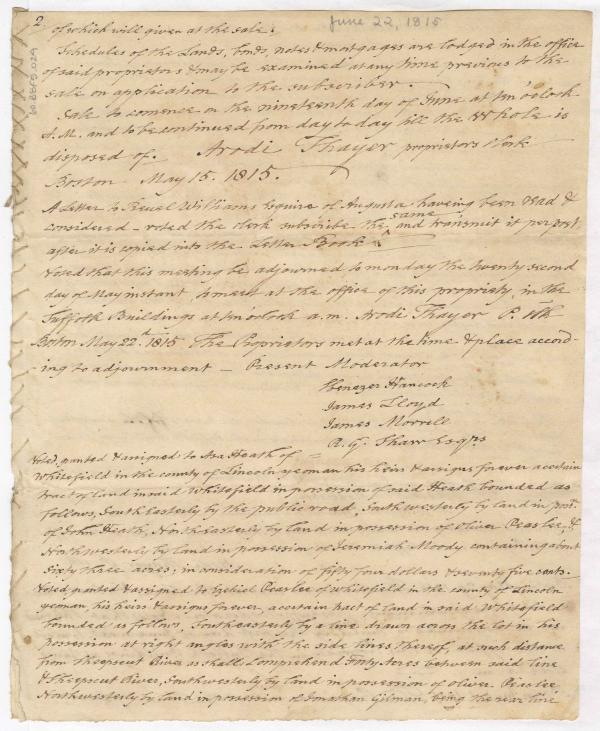 2
June 22, 1815
of which will given at the sale.
Schedules of the Lands, bonds, notes & mortgages are lodged in the office
of said proprietors & may be examined at any time previous to the
sale on application to the subscriber.
Sale to comence on the nineteenth day of June at ten o'clock
A.M. and to be continued from day to day till the Whole is
disposed of. Arodi Thayer proprietors Clerk
Boston May 15. 1815.
A Letter to Reuel Williams Esquire of Augusta haveing been read &
considered - voted the clerk subscribe the same and transmit it per post
after it is copied into the Letter Book
Voted that this meeting be adjourned to monday the twenty second
day of May instant, to meet at the office of this propriety, in the
Suffolk Buildings at ten oclock a.m. Arodi Thayer P. Clk
Boston May 22d. 1815 The Proprietors met at the time & place accord-
ing to adjournment - Present Moderator
Ebenezer Hancock
James Lloyd
James Morrell
R. G. Shaw Esqrs
Voted, granted & assigned to Asa Heath of
Whitefield in the county of Lincoln yeoman his heirs & assigns forever a certain
tract of land in said Whitefield in possession of said Heath bounded as
follows, South Easterly by the public road, Southwesterly by land in posn.
of John Heath, North Easterly by land in possession of Oliver Peaslee &
Northwesterly by land in possession of Jeremiah Moody containing about
Sixty three acres; in consideration of fifty four dollars & seventy five cents.
Voted, granted & assigned to Ezekiel Peaslee of Whitefield in the county of Lincoln
yeoman, his heirs & assigns forever, a certain tract of land in said Whitefield
bounded as follows, Southeasterly by a line drawn across the lot in his
possession at right angles with the side lines thereof, at such distance
from Sheepscut River as shall Comprehend Forty Acres between said line
& Sheepscut River, Southwesterly by land in possession of Oliver Peaslee
Northwesterly by land in possession of Jonathan Gilman, being the rear line